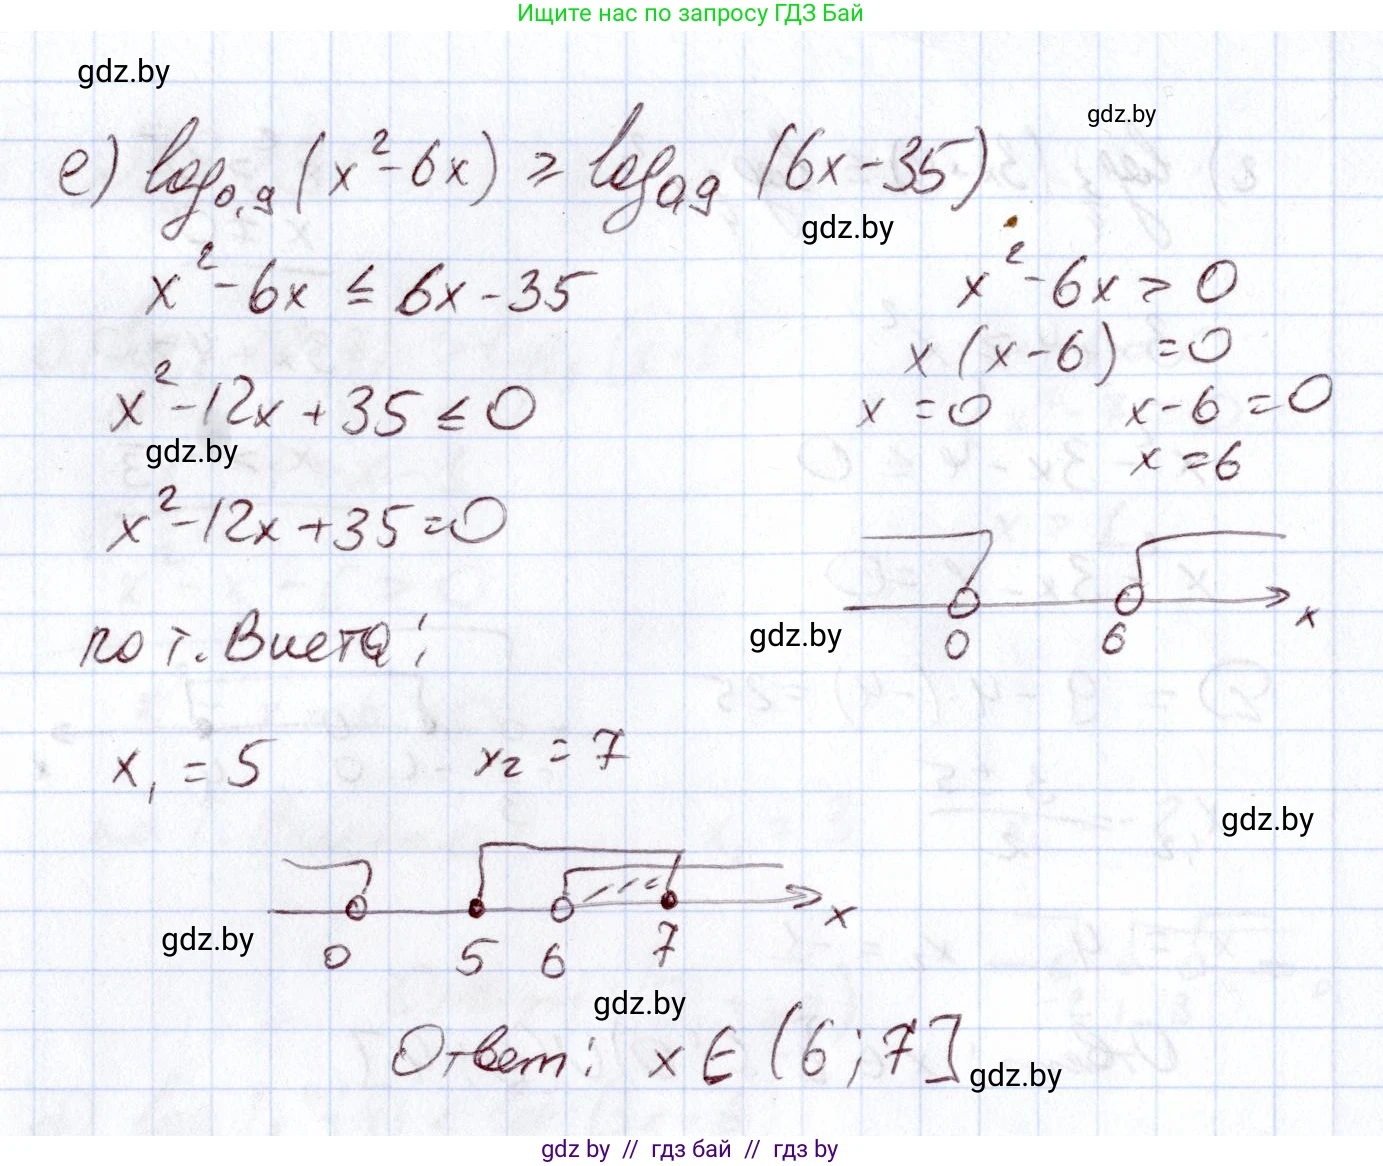 Ищите нас по запросу ГДЗ Бай
gdz.by
gdz.by
е) log₀,₉ (x² - 6x) ≥ log₀,₉ (6x - 35)
gdz.by
x² - 6x ≤ 6x - 35
x² - 12x + 35 ≤ 0
gdz.by
x² - 12x + 35 = 0
по т. Виета:
x₁ = 5 x₂ = 7
x² - 6x > 0
x (x - 6) = 0
x = 0 x - 6 = 0
x = 6
0 6 x
gdz.by
gdz.by
0 5 6 7 x
gdz.by
gdz.by
Ответ: x ∈ (6; 7]
gdz.by
gdz by // гдз бай // гдз by